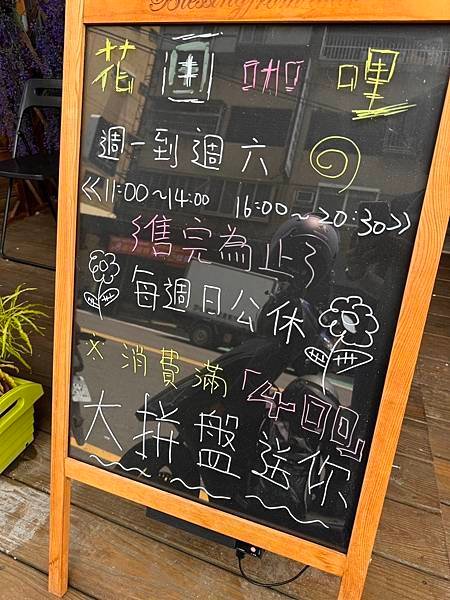 Blessing from
花園咖哩
週一到週六
《11:00~14:00 16:00~20:30》
售完為止
每週日公休
※消費滿「400」
大拼盤送你